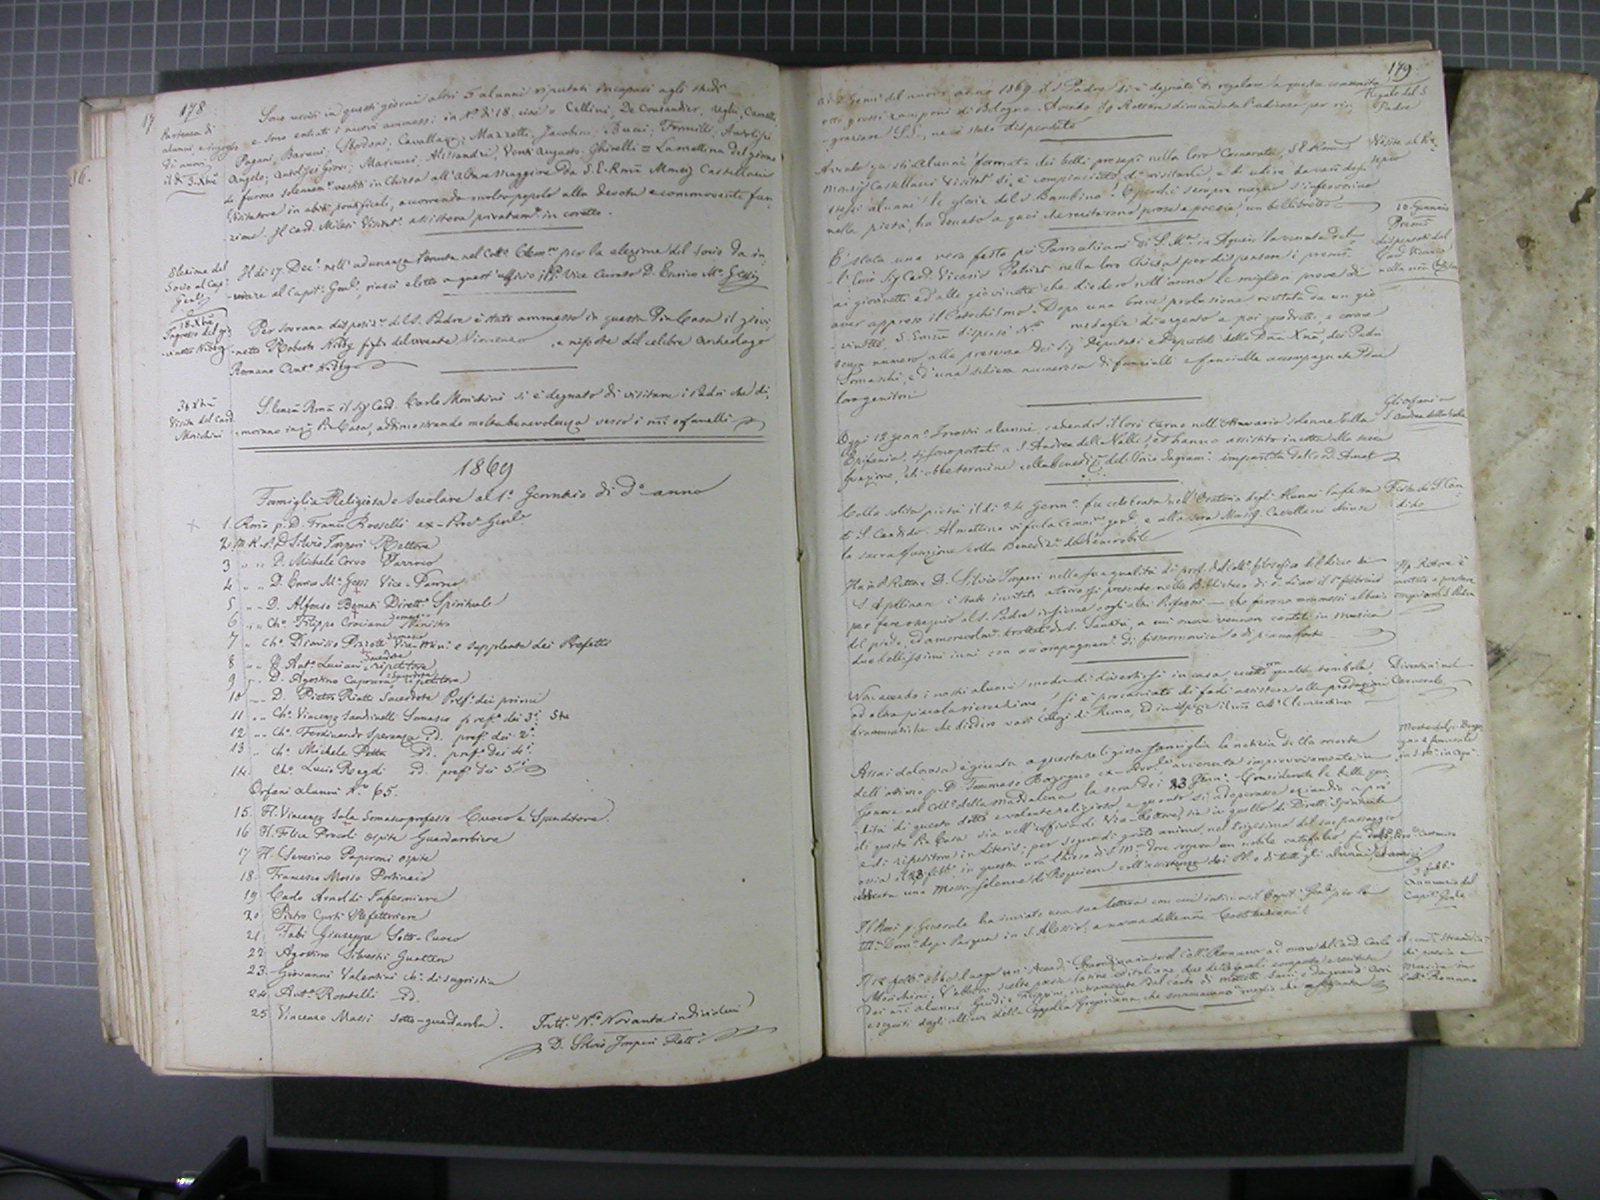 178
Partenza di
alunni e ingresso
di nuovi
il dì 3. Xbre
Sono usciti in questi giorni altri 5 alunni riputati incapaci agli studi
e sono entrati i nuovi ammessi in N.° di 18, cioè Cellini, De Cousandier, Uglii,
Pagani, Barini, Stordoni, Cavallazzi, Mazzetti, Jacobini, Bucci, Formilli, Antolisei
Angelo, Antolisei Giov. Marinucci, Alessandri, Venti Augusto, Ghirelli = La mattina del giorno
furono solennem.e vestiti in Chiesa all'Altare Maggiore da S. E. Rma Monsig Castellacci
Visitatore in abiti pontificali, accorrendo molto popolo alla devota e commovente fun-
-zione. Il Card. Milesi Visitat. assisteva privatam.e in coretto.
Elezione del
Socio al Cap.
Genle
Il di 17 Dec.e nell'adunanza tenuta nel Coll.o Clem.no per la elezione del Socio da in-
-viare al Capit.o Gen.le, riuscì eletto a quest'uffizio il Vice Curato D. Enrico M.a Gessi
18. Xbre
Ingresso del gio-
vinetto Nibby
Per sovrana disposiz.e del S. Padre è stato ammesso in questa Pia Casa il giovi-
-netto Roberto Nibby figlio del vivente Vincenzo, e nipote del celebre Archeologo
Romano Ant.o Nibby
Visita del Card.
Morichini
S. Emza Rma il Sig Card. Carlo Morichini si è degnato di visitare i Padri che di-
-morano in q. Pia Casa, addimostrando molta benevolenza verso i nri orfanelli
1869
Famiglia Religiosa e Secolare al 1.° Gennaio di d.o anno
1. Rmo p. D. Franc. Rosselli ex-Proc. Genle
2. M. R. p. D. Silvio Imperi Rettore
3 " " D. Michele Corvo Parroco
4 " " D. Enrico M.a Gessi Vice-Parroco
5 " " D. Alfonso Benati Dirett.e Spirituale
6 " " Ch.o Filippo Crociani Ministro
7 " Ch.o Dionisio Pizzotti Vice-Minis. e supplente dei Prefetti
8 " " D. Ant.o Luciani Sacerdote ripetitore
9 " " D. Agostino Caprara Sacerdote ripetitore
10 " " D. Pietro Rialti Sacerdote Pref.o dei primi
11 " " Ch.o Vincenzo Sandinelli Somasco pref.o dei 3.i
12 " " Ch.o Ferdinando Speranza id. pref.o dei 2.i
13 " Ch.o Michele Petta id. pref.o dei 4.i
14. Ch.o Lucio Regdi id. pref.o dei 5.i
Orfani alunni N.o 65.
15. Fr. Vincenzo Sala Somasco professo Cuoco e Spenditore
16 Fr. Felice Procoli ospite Guardarobiere
17 Fr. Severino Paperoni ospite
18. Francesco Mosso Portinaio
19 Carlo Arnoldi Infermiere
20 Pietro Curti Refettoriere
21 Fabi Giuseppe Sotto-Cuoco
22 Agostino Silvestri Guattero
23. Giovanni Valentini di sagristia
24. Ant.o Romtelli id.
25 Vincenzo Massi sotto-guardaroba.
Tutti N.o Novanta individui
D. Silvio Imperi Rett.
179
Regalo del S.
Padre
Ai 2 Genn. del nuovo anno 1869 il S. Padre si è degnato di regalare a questa comunità
otto grossi zamponi di Bologna. Avendo il p. Rettore dimandata l'udienza per rin-
graziare S. S., ne è stato dispensato
Visita al Pre-
sepio
Avendo questi alunni formato dei belli presepi nella loro Camerata, S. E. Rma
Monsig Castellacci Visitat. si è compiaciuto di visitarli, e di udire davanti dagli
stessi alunni le glorie del S. Bambino. E perchè sempre meglio s'infervorino
nella pietà, ha donato a quei che recitarono prose e poesie, un bel libretto
10. Gennaio
Premii
dispensati dal
Card. Vicario
nella nra Chiesa
È stata una vera festa pei Parrocchiani di S. M.a in Aquiro la venuta del-
l'Emo Sig Card. Vicario Patrizi nella loro Chiesa per dispensare i premii
ai giovinetti ed alle giovinette che diedero nell'anno le migliori prove di
aver appreso il Catechismo. Dopo una breve prolusione recitata da un gio-
vinetto S. Emza dispensò N.o medaglie di argento e poi quadretti, e corone
senza numero alla presenza dei Sig. Deputati e Deputate della Dna Xna, dei Padri
Somaschi, e d'una schiera numerosa di fanciulli e fanciulle accompagnate dai
loro genitori
Gli orfani a
S. Andrea della Valle
Oggi 12 genn. i nostri alunni, cadendo il loro turno nell'Ottavario solenne della
Epifania, si sono portati a S. Andrea della Valle, ed hanno assistito in cotta alla sacra
funzione, che ebbe termine colla benediz. del Vble Sagram. impartita dal Card. Amat
Festa di S. Can-
dido
Colla solita pietà il di 24 Genn. fu celebrata nell'Oratorio degli Alunni la festa
di S. Candido. Al mattino vi fu la Comun. genle, e alla sera Monsig Castellacci chiuse
la sacra funzione colla Benediz. del Venerabile
Il p. Rettore è
invitato a prestare
omaggio al S. Padre
Il n.o p. Rettore D. Silvio Imperi nella sua qualità di prof. di filosofia del liceo di
S. Apollinare è stato invitato a trovarsi presente nella Biblioteca di d.o Liceo il 1.° febbraio
per fare omaggio al S. Padre insieme cogli altri Professori — che furono ammessi al bacio
del piede, ed amorevolm. trattati da S. Santità, a cui nuove vennero cantati in musica
due bellissimi inni con accompagnam. di fisarmonica e di pianoforte
Divertim. nel
Carnevale
Non avendo i nostri alunni modo di divertirsi in casa eccetto qualche tombola,
ed altra piccola ricreazione, si è procurato di farli assistere alle produzioni
drammatiche che diedero varii Collegi di Roma, ed in ispecie il nro Coll. Clementino
Morte del p. Borgo-
gno e funerale
in S. M. in Aqu.
Assai dolorosa è giunta a questa religiosa famiglia la notizia della morte
dell'ottimo p. D. Tommaso Borgogno ex-Provle avvenuta improvvisamente in
Genova nel Coll.o della Maddalena la sera dei 23 Genn. Considerate le belle qua-
lità di questo dotto e valente religioso, e quanto si adoperasse eziandio a prò
di questa Pia Casa sia nell'uffizio di Vice-Rettore, sia in quello di Dirett. Spirituale
e di ripetitore in literis: per segno di grato animo, nel trigesimo del suo passaggio
ossia ai 23 febb. in questa nra Chiesa di S. M.a dove sorgeva un nobile catafalco fu
una Messa solenne di Requiem coll'assistenza dei PP. e di tutti gli alunni
3 febb.
Annunzio del
Capit. Genle
Il Rmo p. Generale ha inviato una sua lettera con cui intima il Capit. Genle per la
III.a Dom. dopo Pasqua in S. Alessio, a norma delle nre Costituzioni
Accad. straordin.
di poesia e
musica in
Coll. Romano
Il 12 febb. ebbe luogo un' Accad. Straordinaria nel Coll. Romano ad onore del Card. Carlo
Morichini. V'ebbero scelte poesie latine ed italiane, due delle quali composte e recitate
dai nri alunni Guidi e Filippini, intramezzate dal canto di mottetti sacri e da grandi cori
eseguiti dagli allievi della Cappella Gregoriana